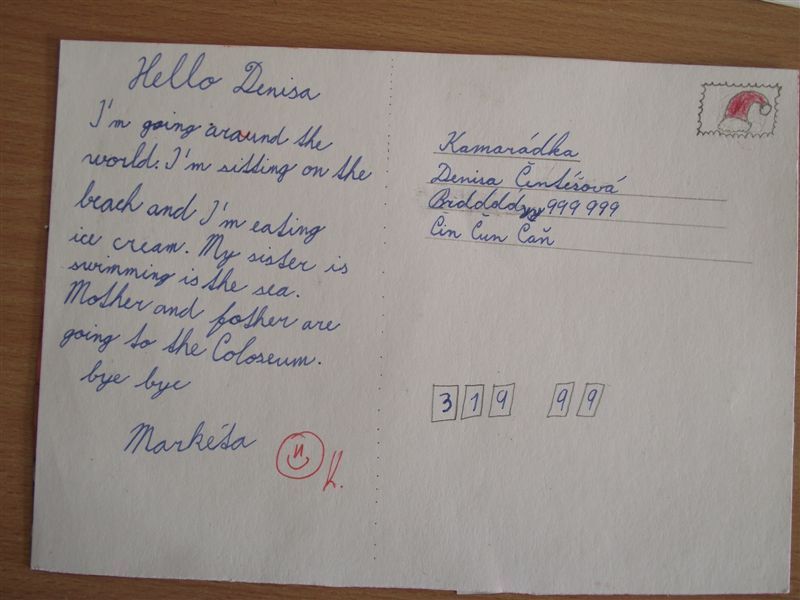 Hello Denisa
I'm going around the
world. I'm sitting on the
beach and I'm eating
ice cream. My sister is
swimming is the sea.
Mother and fother are
going to the Coloseum.
bye bye
Markéta
Kamarádka
Denisa Čintéšová
999 999
Čin Čun Čaň
319 99